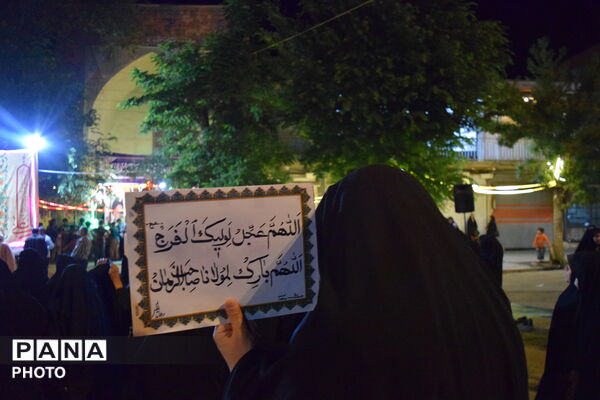 اللهم عجل لوليك الفرج
اللهم بارك لمولانا صاحب الزمان
PANA
PHOTO